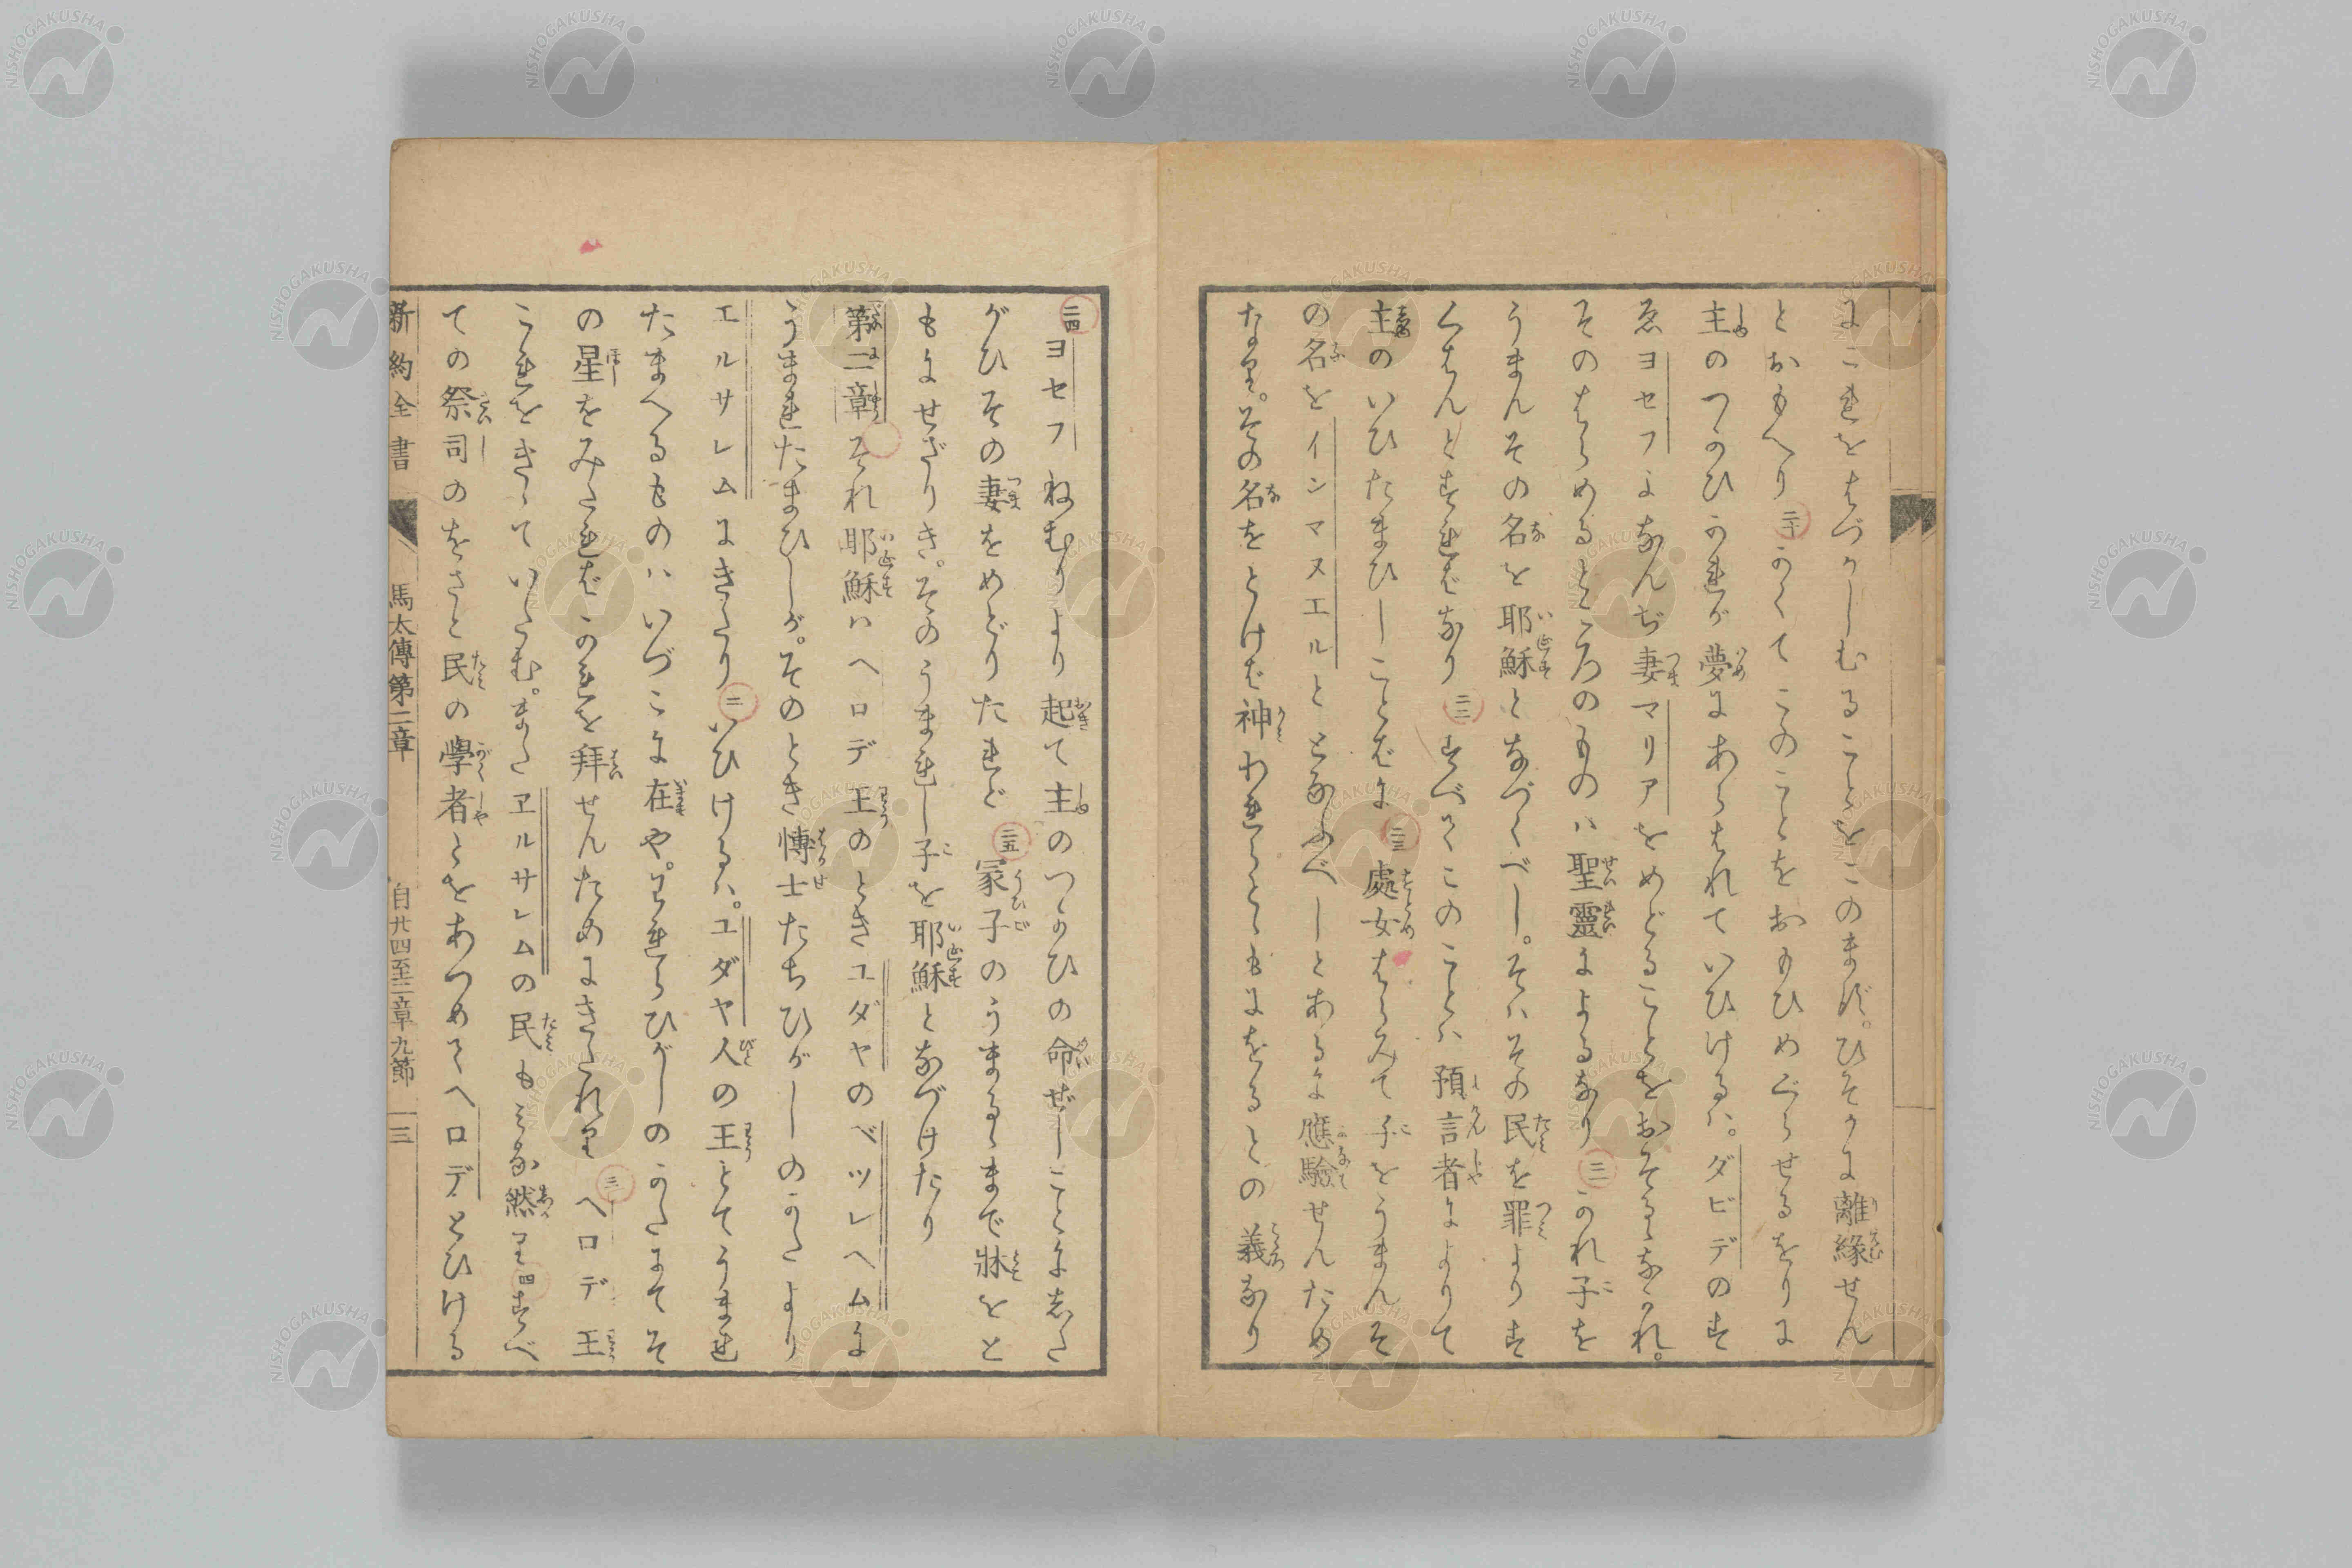 にこれをはづかしむることをこのまず。ひそかに離縁せん
とおもへり 二十 かくてこのことをおもひめぐらせるをりに
主のつかひかれが夢にあらはれていひけるハ。ダビデのす
ゑヨセフよなんぢ妻マリアをめどることをおそるゝなかれ。
そのはらめるところのものハ聖靈によるなり 二一 かれ子を
うまんその名を耶穌となづくべし。そハその民を罪よりす
くはんとすればなり 二二 すべてこのことハ預言者によりて
主のいひたまひしことばに 二三 處女はらみて子をうまんそ
の名をインマヌエルととなふべしとあるに應驗せんため
なり。その名をとけば神われらとゝもにをるとの義なり
二四 ヨセフねむりより起て主のつかひの命ぜしことにした
がひその妻をめどりたれど 二五 冢子のうまるゝまで牀をと
もにせざりき。そのうまれし子を耶穌となづけたり
第二章 それ耶穌ハヘロデ王のときユダヤのベツレヘムに
うまれたまひしが。そのとき博士たちひがしのかたより
エルサレムにきたり 二 いひけるハ。ユダヤ人の王とてうまれ
たまへるものハいづこに在や。われらひがしのかたにてそ
の星をみたればかれを拜せんためにきたれり 三 ヘロデ王
これをきゝていたむ。またヱルサレムの民もみな然り 四 すべ
ての祭司のをさと民の學者とをあつめてヘロデとひける
新約全書 馬太傳第二章 自廿四至二章九節 三
NISHOGAKUSHA